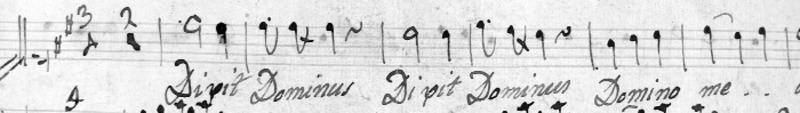 3 2
Dixit Dominus Dixit Dominus Domino me . .